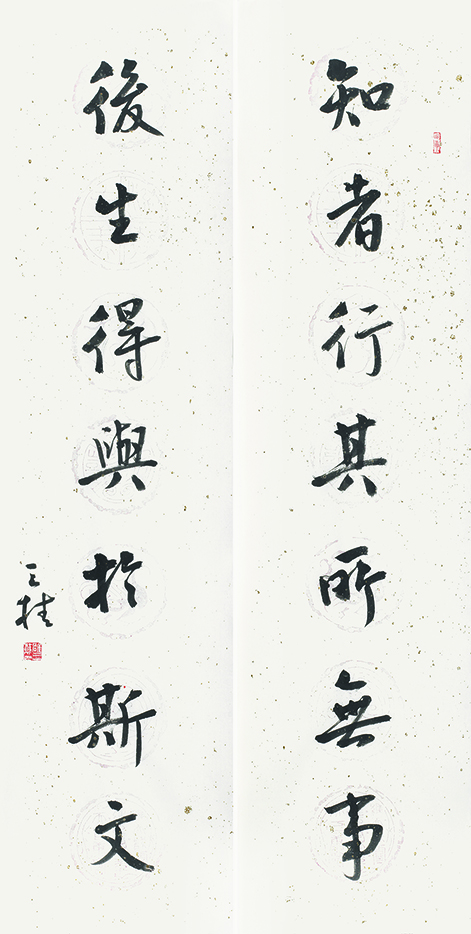 知者行其所無事
後生得與於斯文